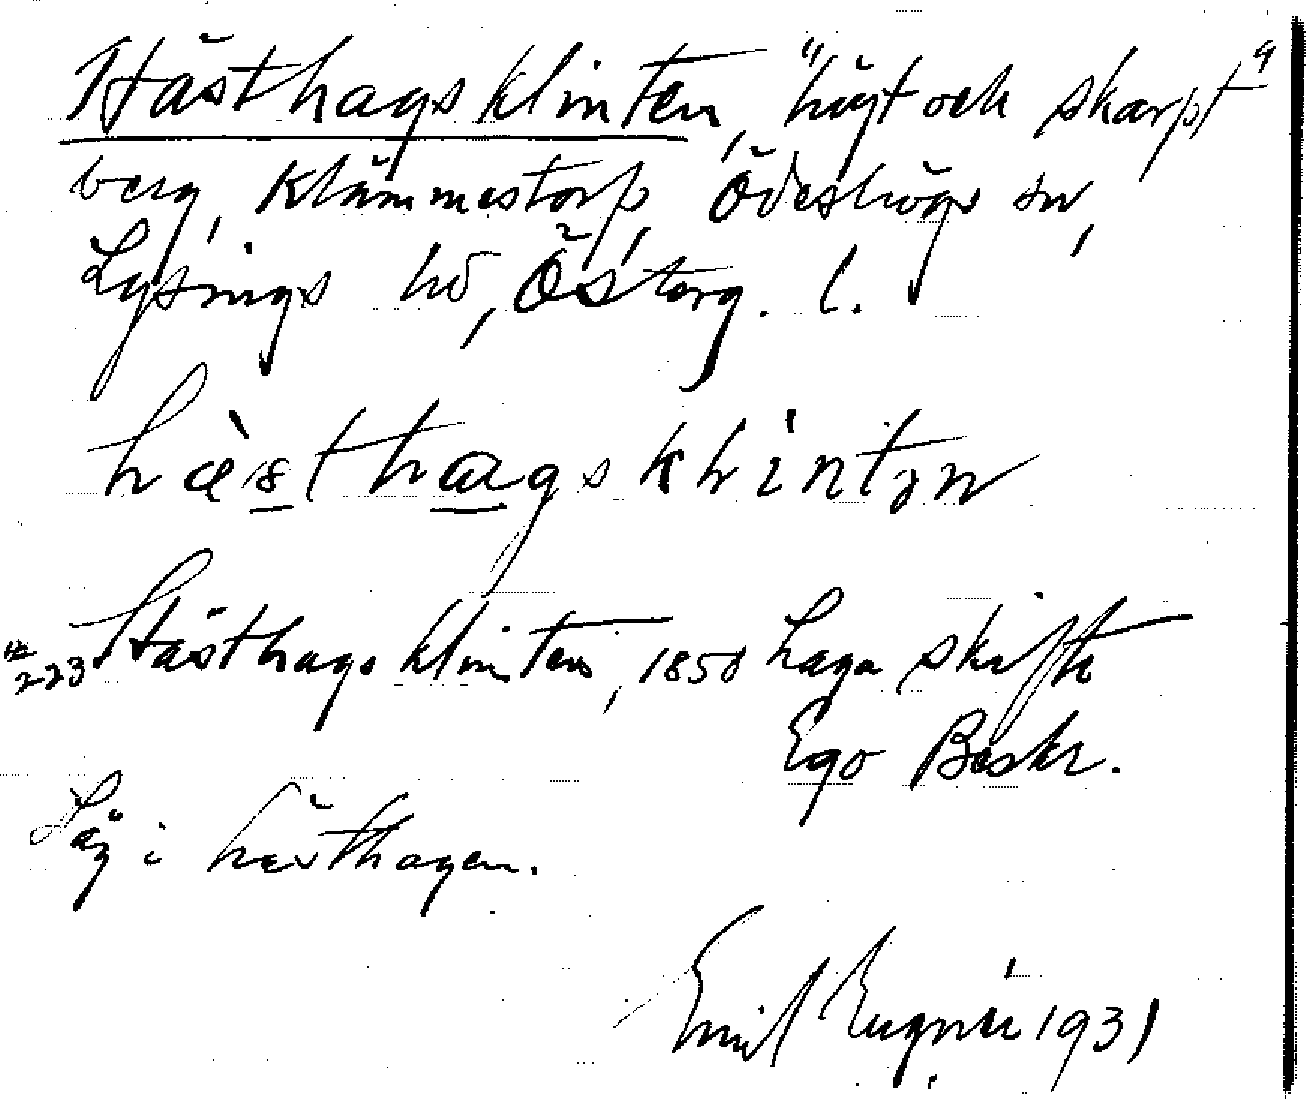 Hästhagsklinten, "högt och skarpt"
berg, Klämmestorp, Ödeshögs sn,
Lysings hd, Österg. l.
hæ̀sthagsklintən
Hästhagsklinten, 1850 Laga skifte
223 Ego Beskr.
Låg i hästhagen.
Emil 1931